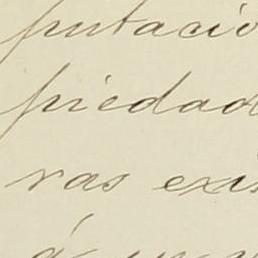 putació
piedad
ras exis
á